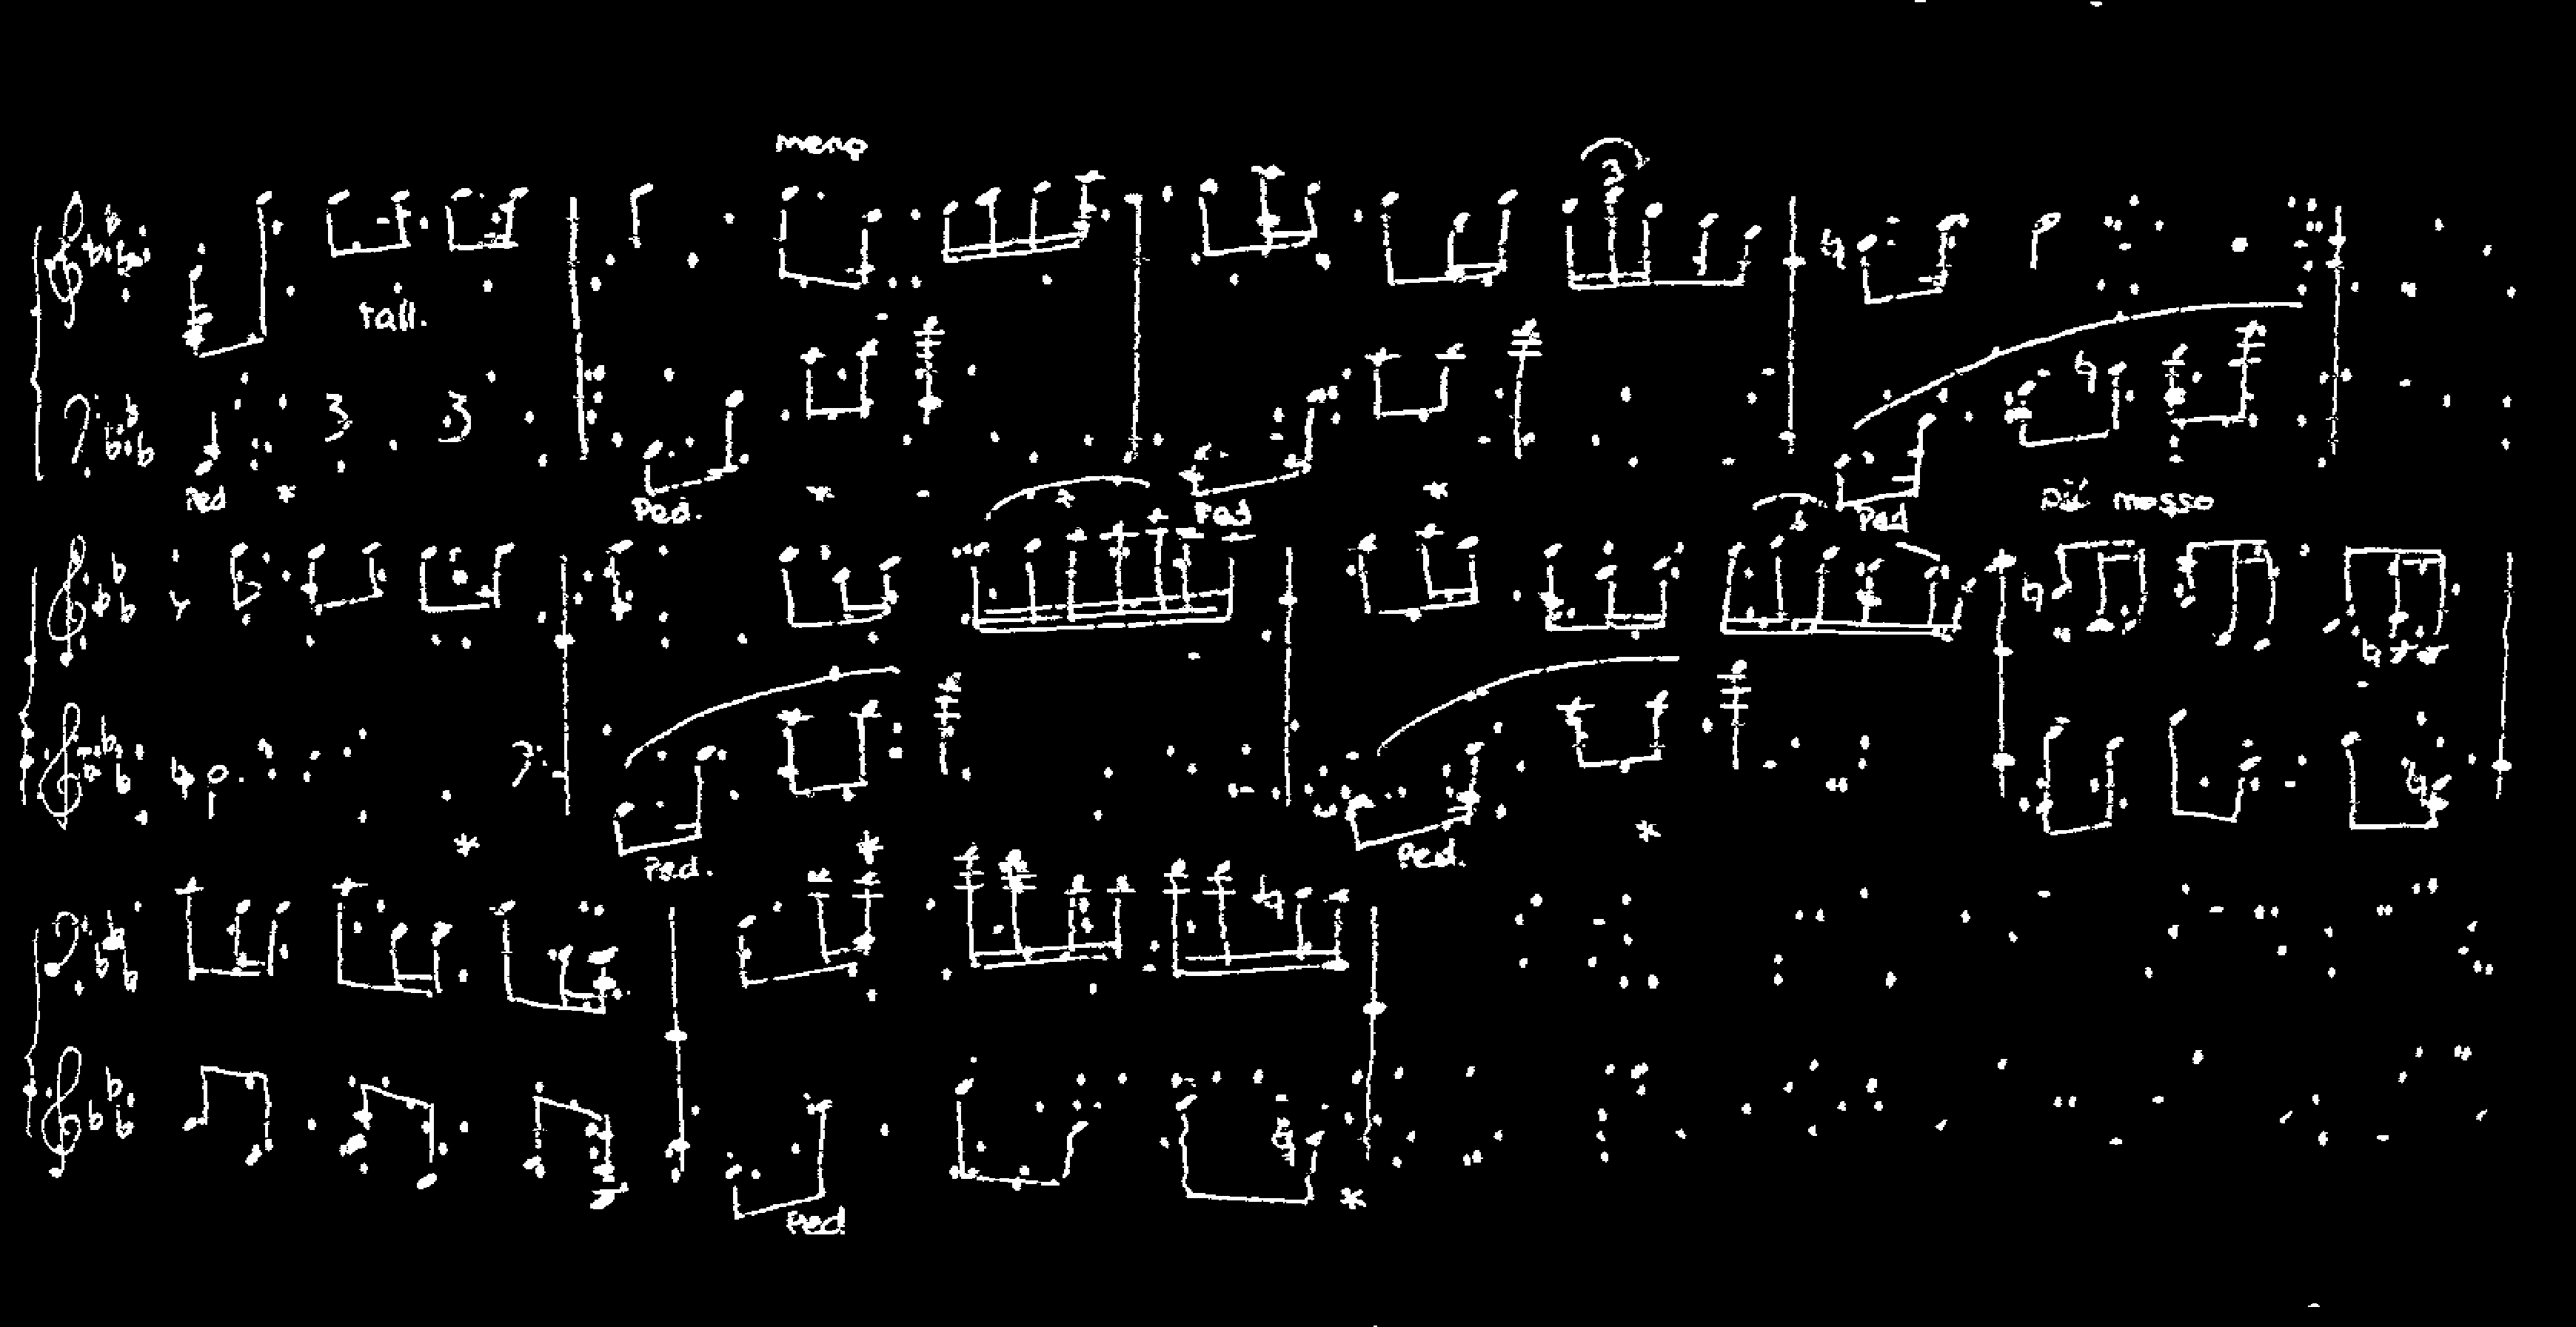 meno
3
rall.
Ped * Ped. * Ped * Ped
più mosso
Ped. * Ped. *
*
Ped *